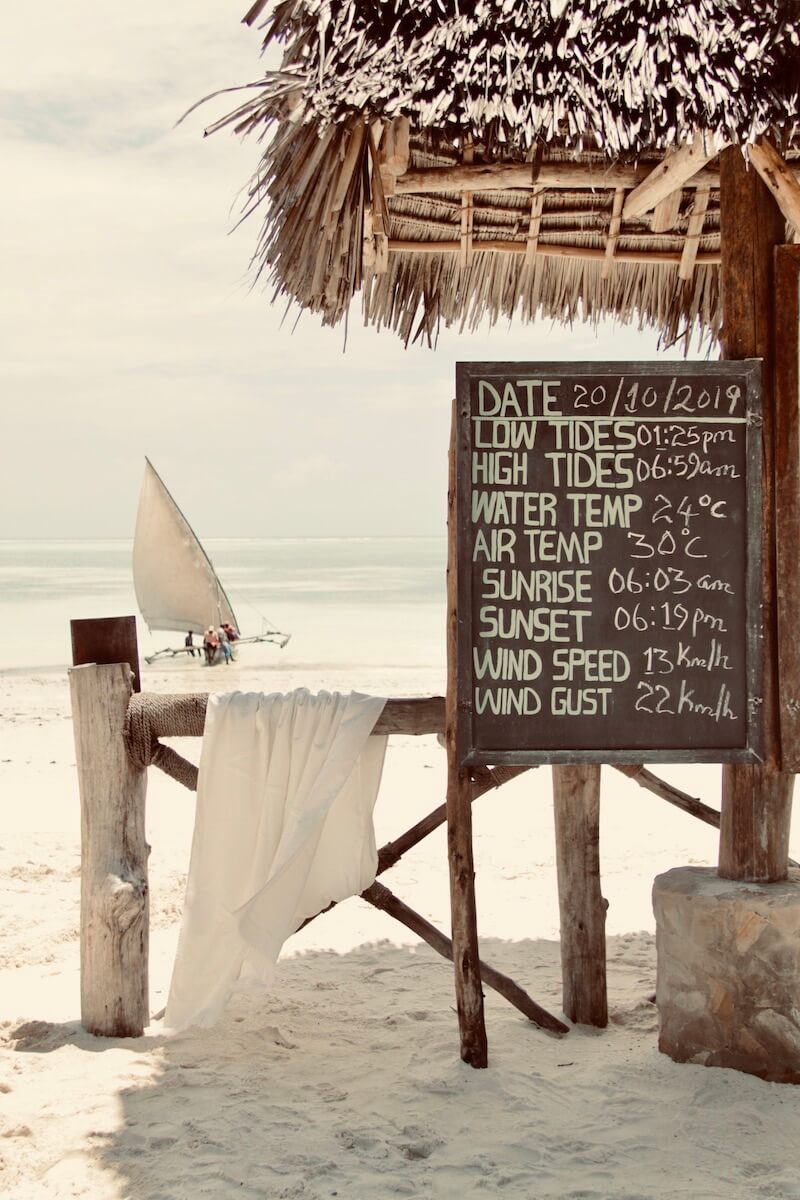 DATE 20/10/2019
LOW TIDES 01:25pm
HIGH TIDES 06:59am
WATER TEMP 24°C
AIR TEMP 30°C
SUNRISE 06:03am
SUNSET 06:19pm
WIND SPEED 13Km/h
WIND GUST 22Km/h